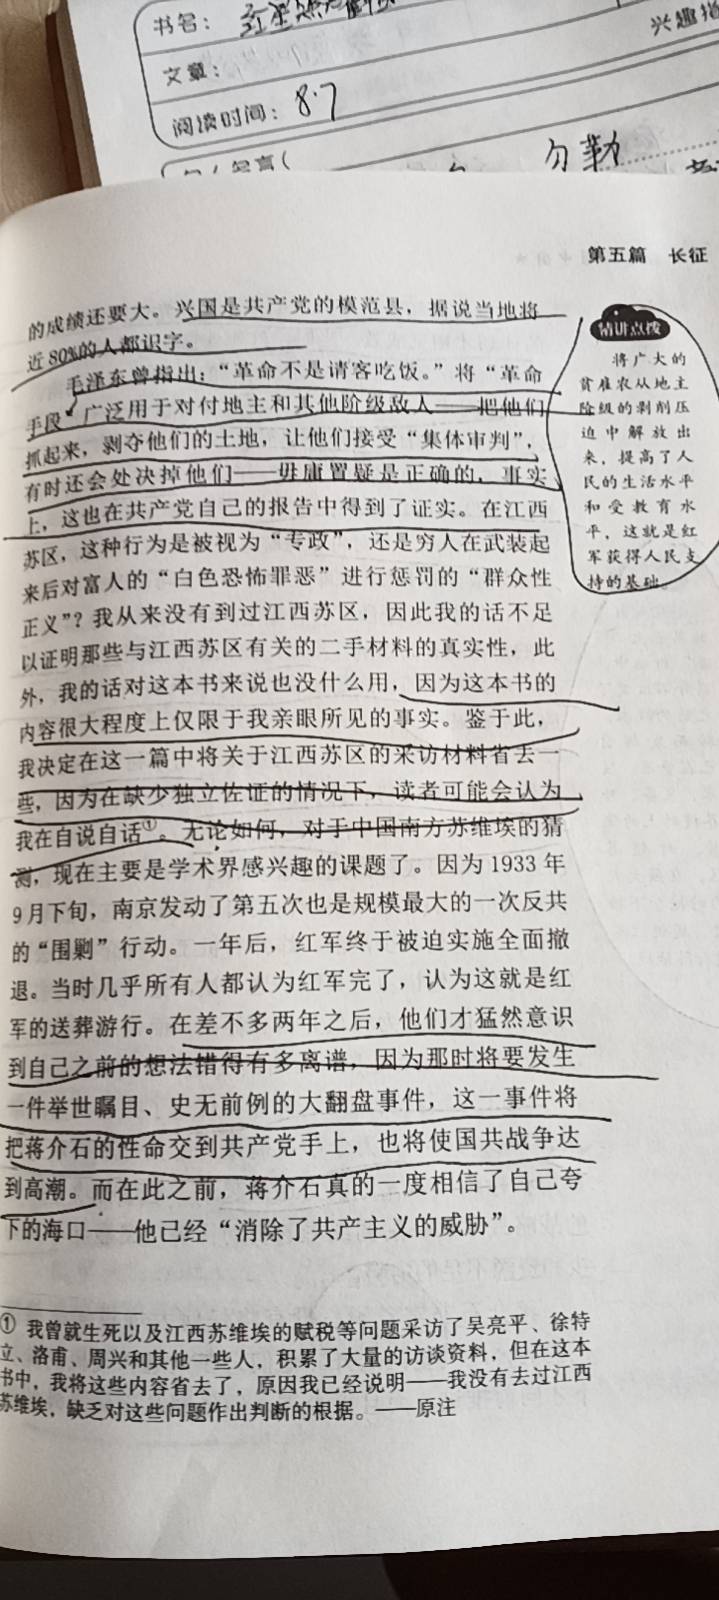 书名：
兴趣指
文章：
阅读时间：8.7
第五篇 长征
的成绩还要大。兴国是共产党的模范县，据说当地将
近80%的人都识字。
毛泽东曾指出：“革命不是请客吃饭。”将“革命
手段”广泛用于对付地主和其他阶级敌人——把他们
抓起来，剥夺他们的土地，让他们接受“集体审判”，
有时还会处决掉他们——毋庸置疑是正确的，事实
上，这也在共产党自己的报告中得到了证实。在江西
苏区，这种行为是被视为“专政”，还是穷人在武装起
来后对富人的“白色恐怖罪恶”进行惩罚的“群众性
正义”？我从来没有到过江西苏区，因此我的话不足
以证明那些与江西苏区有关的二手材料的真实性，此
外，我的话对这本书来说也没什么用，因为这本书的
内容很大程度上仅限于我亲眼所见的事实。鉴于此，
我决定在这一篇中将关于江西苏区的采访材料省去一
些，因为在缺少独立佐证的情况下，读者可能会认为
我在自说自话①。无论如何，对于中国南方苏维埃的猜
测，现在主要是学术界感兴趣的课题了。因为1933年
9月下旬，南京发动了第五次也是规模最大的一次反共
的“围剿”行动。一年后，红军终于被迫实施全面撤
退。当时几乎所有人都认为红军完了，认为这就是红
军的送葬游行。在差不多两年之后，他们才猛然意识
到自己之前的想法错得有多离谱，因为那时将要发生
一件举世瞩目、史无前例的大翻盘事件，这一事件将
把蒋介石的性命交到共产党手上，也将使国共战争达
到高潮。而在此之前，蒋介石真的一度相信了自己夸
下的海口——他已经“消除了共产主义的威胁”。
精讲点拨
将广大的
贫雇农从地主
阶级的剥削压
迫中解放出
来，提高了人
民的生活水平
和受教育水
平，这就是红
军获得人民支
持的基础。
① 我曾就生死以及江西苏维埃的赋税等问题采访了吴亮平、徐特
立、洛甫、周兴和其他一些人，积累了大量的访谈资料，但在这本
书中，我将这些内容省去了，原因我已经说明——我没有去过江西
苏维埃，缺乏对这些问题作出判断的根据。——原注